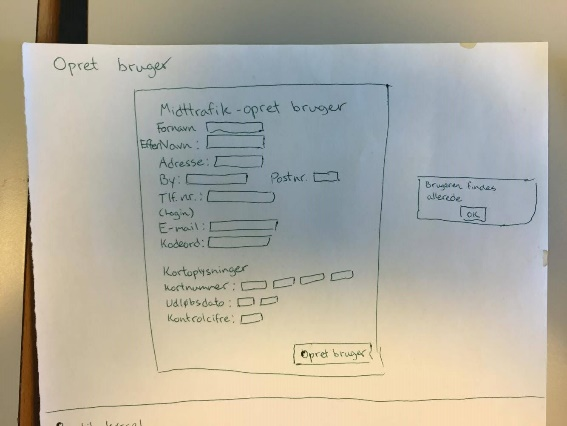 Opret bruger
Midttrafik - opret bruger
Fornavn
EfterNavn:
Adresse:
By: Postnr.
Tlf.nr.:
(Login)
E-mail:
Kodeord:
Kortoplysninger
Kortnummer:
Udløbsdato:
Kontrolcifre:
Opret bruger
Brugeren findes
allerede
OK